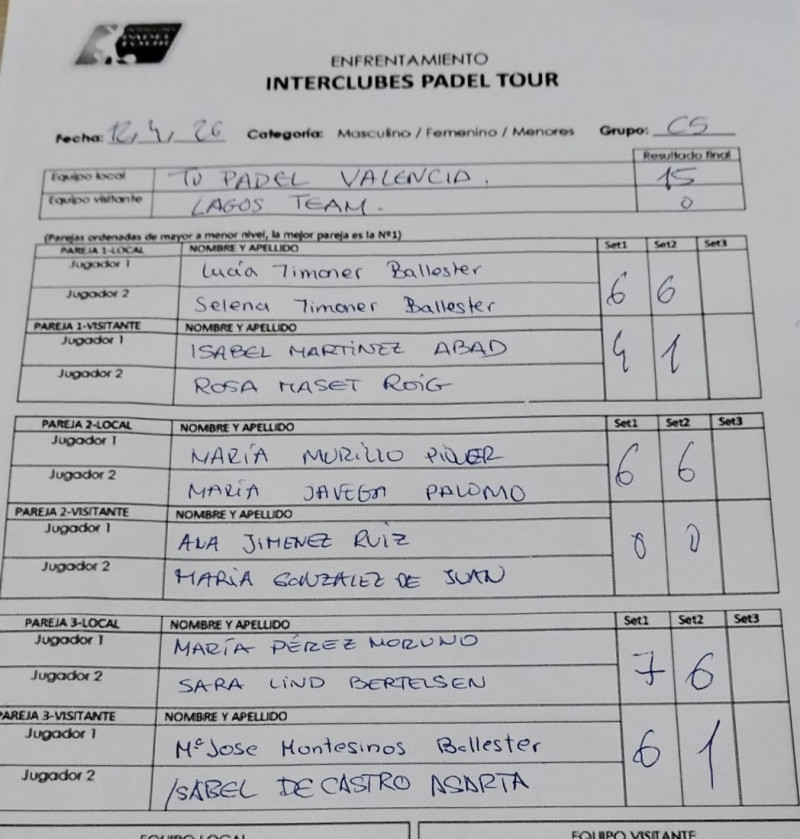 PADEL
TOUR
ENFRENTAMIENTO
INTERCLUBES PADEL TOUR
Fecha: 12, 4, 26 Categoría: Masculino / Femenino / Menores Grupo: C5
Resultado final
Equipo local TU PADEL VALENCIA. 15
Equipo visitante LAGOS TEAM. 0
(Parejas ordenadas de mayor a menor nivel, la mejor pareja es la Nº1)
PAREJA 1-LOCAL NOMBRE Y APELLIDO Set1 Set2 Set3
Jugador 1 Lucía Timoner Ballester
Jugador 2 Selena Timoner Ballester 6 6
PAREJA 1-VISITANTE NOMBRE Y APELLIDO
Jugador 1 ISABEL MARTÍNEZ ABAD 4 1
Jugador 2 ROSA MASET ROIG
PAREJA 2-LOCAL NOMBRE Y APELLIDO Set1 Set2 Set3
Jugador 1 MARÍA MURILLO PIQUER 6 6
Jugador 2 MARÍA JAVEGA PALOMO
PAREJA 2-VISITANTE NOMBRE Y APELLIDO
Jugador 1 ANA JIMENEZ RUIZ 0 0
Jugador 2 MARÍA GONZALEZ DE JUAN
PAREJA 3-LOCAL NOMBRE Y APELLIDO Set1 Set2 Set3
Jugador 1 MARÍA PÉREZ MORUNO
Jugador 2 SARA LIND BERTELSEN 7 6
PAREJA 3-VISITANTE NOMBRE Y APELLIDO
Jugador 1 Mª Jose Montesinos Ballester 6 1
Jugador 2 ISABEL DE CASTRO ASARTA
EQUIPO LOCAL EQUIPO VISITANTE